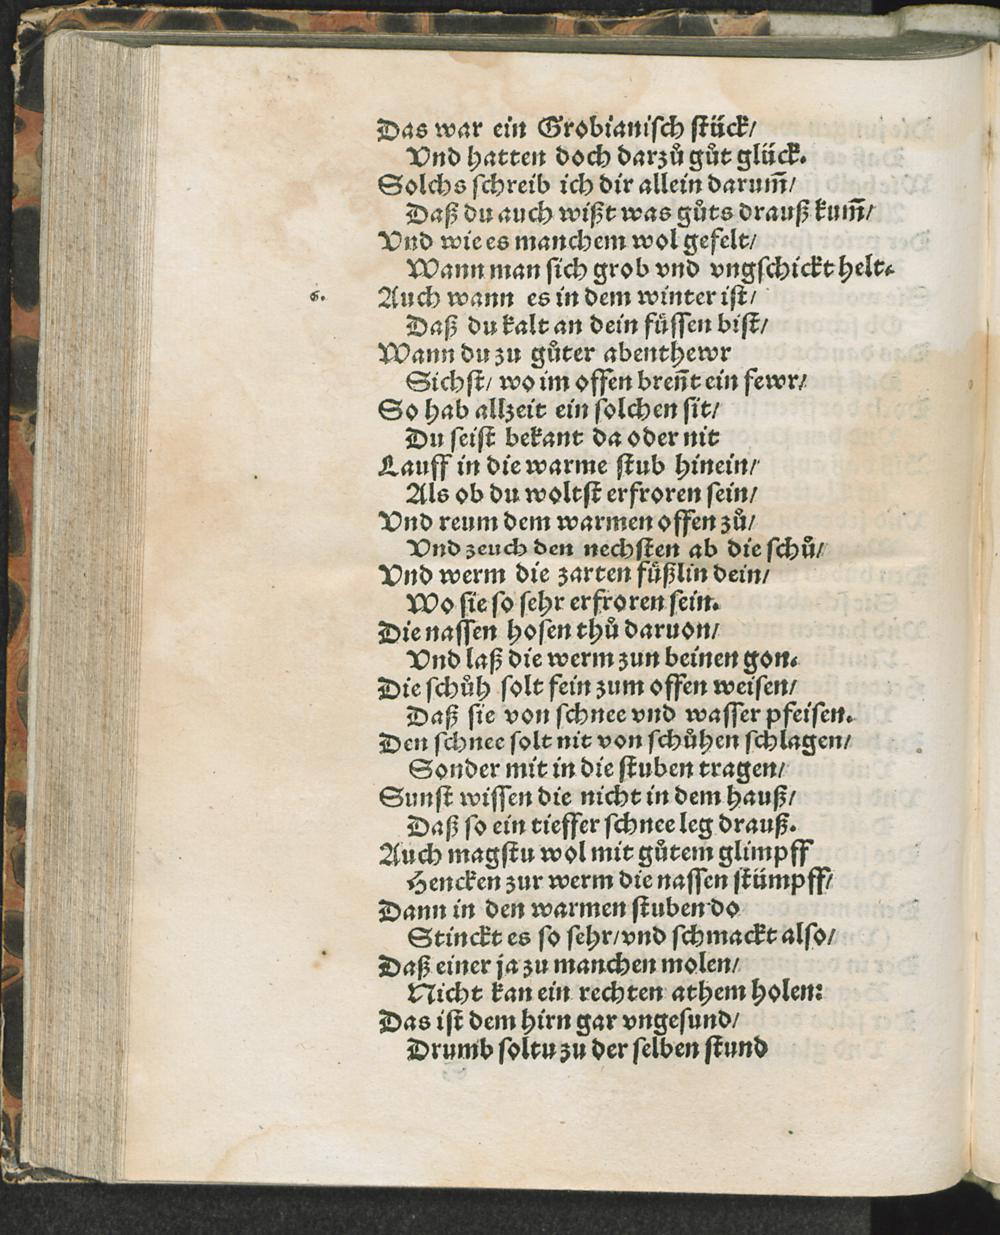 Das war ein Grobianisch stück/
Vnd hatten doch darzů gůt glück.
Solchs schreib ich dir allein darum̃/
Daß du auch wißt was gůts drauß kum̃/
Vnd wie es manchem wol gefelt/
Wann man sich grob vnd vngschickt helt.
6. Auch wann es in dem winter ist/
Daß du kalt an dein füssen bist/
Wann du zu gůter abenthewr
Sichst/ wo im offen breñt ein fewr/
So hab allzeit ein solchen sit/
Du seist bekant da oder nit
Lauff in die warme stub hinein/
Als ob du woltst erfroren sein/
Vnd reum dem warmen offen zů/
Vnd zeuch den nechsten ab die schů/
Vnd werm die zarten füßlin dein/
Wo sie so sehr erfroren sein.
Die nassen hosen thů daruon/
Vnd laß die werm zun beinen gon.
Die schůh solt fein zum offen weisen/
Daß sie von schnee vnd wasser pfeisen.
Den schnee solt nit von schůhen schlagen/
Sonder mit in die stuben tragen/
Sunst wissen die nicht in dem hauß/
Daß so ein tieffer schnee leg drauß.
Auch magstu wol mit gůtem glimpff
Hencken zur werm die nassen stümpff/
Dann in den warmen stuben do
Stinckt es so sehr/ vnd schmackt also/
Daß einer ja zu manchen molen/
Nicht kan ein rechten athem holen:
Das ist dem hirn gar vngesund/
Drumb soltu zu der selben stund